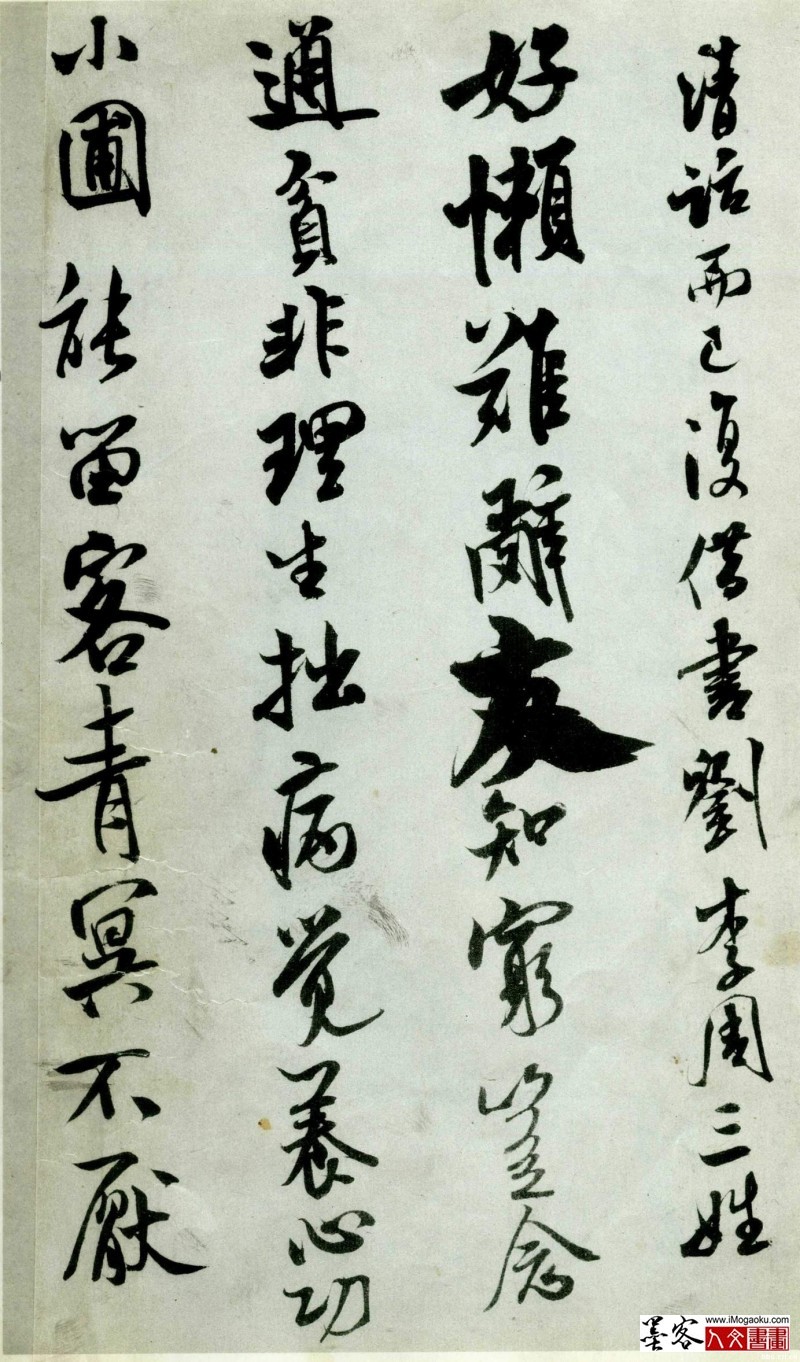 清話而已復借書劉李周三姓
好懶難辭友知窮豈念
通貧非理生拙病覺養心功
小圃能留客青冥不厭
墨客
www.iMogaoku.com
人文書畫